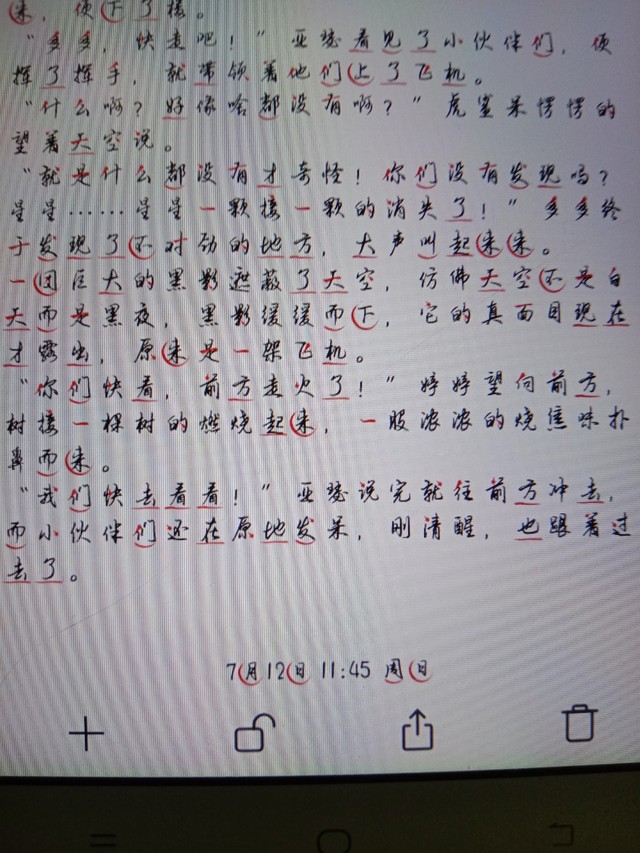 来，便下了楼。
“多多，快走吧！”亚瑟看见了小伙伴们，便
挥了挥手，就带领着他们上了飞机。
“什么啊？好像啥都没有啊？”虎鲨呆愣愣的
望着天空说。
“就是什么都没有才奇怪！你们没有发现吗？
星星……星星一颗接一颗的消失了！”多多终
于发现了不对劲的地方，大声叫起来来。
一团巨大的黑影遮蔽了天空，仿佛天空不是白
天而是黑夜，黑影缓缓而下，它的真面目现在
才露出，原来是一架飞机。
“你们快看，前方走火了！”婷婷望向前方，
树接一棵树的燃烧起来，一股浓浓的烧焦味扑
鼻而来。
“我们快去看看！”亚瑟说完就往前方冲去，
而小伙伴们还在原地发呆，刚清醒，也跟着过
去了。
7月12日 11:45 周日